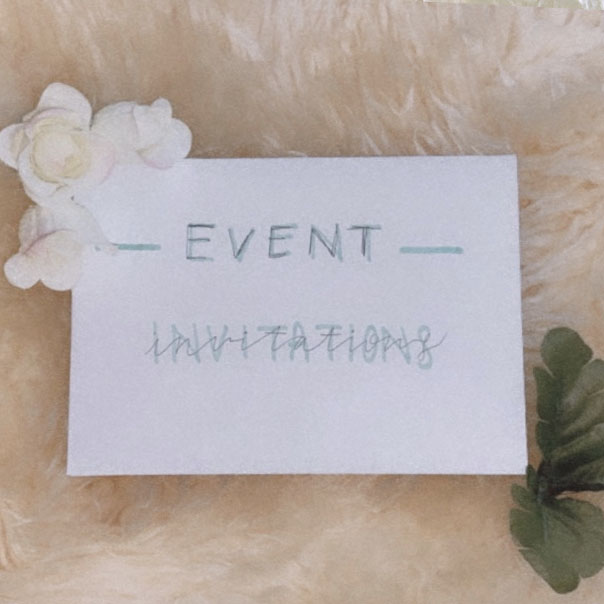 EVENT
INVITATIONS
invitations